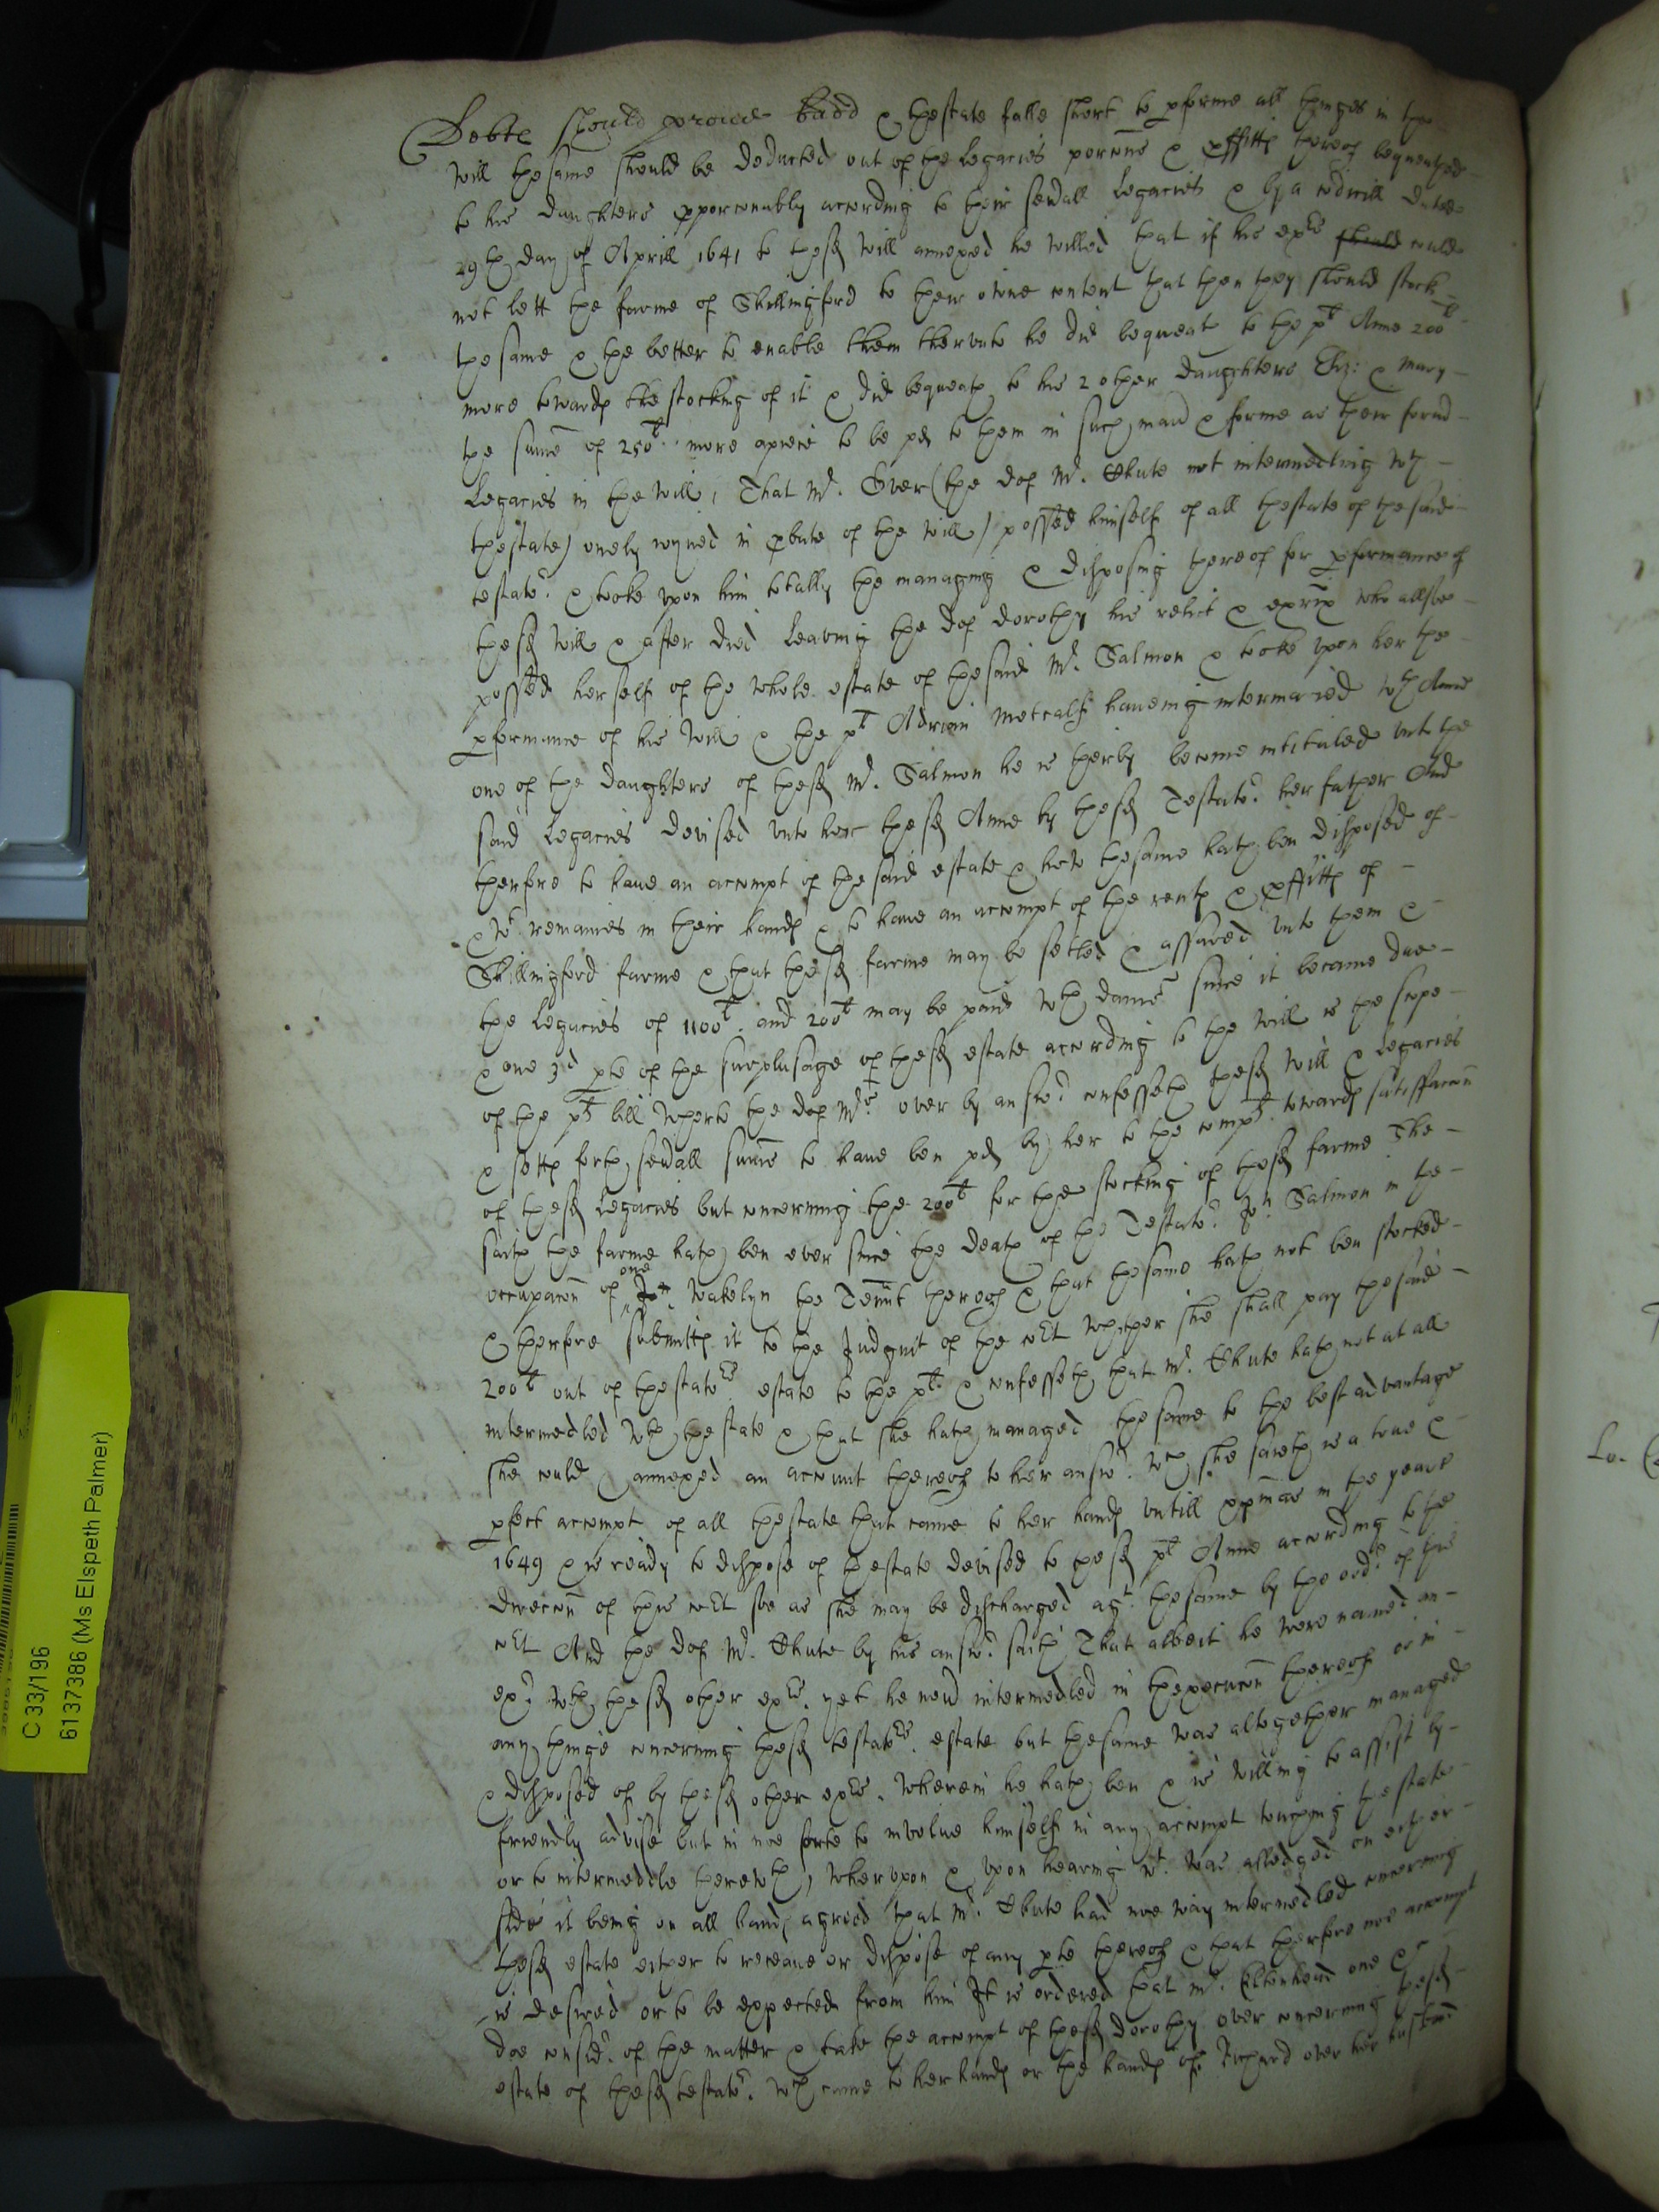 Debte should prove badd & thestate falle short to pforme all thinges in the
will the same should be deducted out of the legacies porcons & pffitts thereof bequeathed
to his daughters pporconably according to their seuall legacies & by a codicill dated
29th day of Aprill 1641 to the sd will annexed he willed that if his exrs should could
not lett the farme of Shillingford to their owne content that then they should stock
the same & the better to enable them thervnto he did bequeath to the plt Anne 200l
more towards the stocking of it & did bequeath to his 2 other daughters Eliz: & Mary
the sume of 250l more apeece to be pd to them in such mannr & forme as their formr
legacies in the will, That Mr. Over (the deft Mr. Chute not intermedling wth
thestate) onely ioyned in pbate of the will) possed himself of all thestate of the said
testator & tooke vpon him totally the managing & disposing thereof for pformance of
the sd will & after died leaving the deft Dorothy his relict & exrix who allsoe
possed herself of the whole estate of the said Mr. Salmon & tooke vpon her the
pformance of his will & the plt Adrian Metcalfe haueing intermaried wth Anne
one of the daughters of the sd Mr. Salmon he is therby become intituled vnto the
said legacies devised vnto her the sd Anne by the sd Testator her father And
therfore to haue an accompt of the said estate & how the same hath ben disposed of
& wt remaines in their hands & to haue an accompt of the rents & pffitts of
Shillingford farme & that the sd farme may be setled & assured vnto them &
the legacies of 1100l. and 200l may be paid wth dams since it became due
& one 3d pte of the surplusage of the sd estate according to the will is the scope
of the plts bill wherto the deft Mrs Over by answr confesseth the sd will & legacies
& setts forth seuall sumes to haue ben pd by her to the complt towards satisfaccon
of the sd legacies but concerning the 200l for the stocking of the sd farme She
saith the farme hath ben ever since the death of the Testator Jon Salmon in the
one
occupacon of Jo: Wakelyn the Tennt thereof & that the same hath not ben stocked
& therfore submitts it to the Judgmt of the Cot whether she shall pay the said
200l out of thestators estate to the plt. & confesseth that Mr. Chute hath not at all
intermedled wth the state & that she hath managed the same to the best advantage
she could & annexed an account thereof to her answr. wch she saieth is a true &
pfect accompt of all thestate that came to her hands vntill xpmas in the yeare
1649 & is ready to dispose of thestate devised to the sd plt Anne according to the
direccon of this Cot soe as she may be discharged agt the same by the ordr of this
Cot And the deft Mr. Chute by his answr saith That albeit he were named an
exr wth the sd other exrs. yet he never intermedled in thexecucon thereof or in
any thinge concerning the sd testators estate but the same was altogether managed
& disposed of by the sd other exrs. wherein he hath ben & is willing to assist by
friendly advise but in noe sorte to involue himself in any accompt touching the state
or to intermeddle therewth, wherupon & vpon hearing wt. was alledged on either
side it being on all hands agreed that Mr. Chute had noe way intermedled concerning
the sd estate either to receaue or dispose of any pte thereof & that therfore noe accompt
is desired or to be expected from him It is ordered that Mr. Eltonhead one &c
doe considr. of the matter & take the accompt of the sd Dorothy Over concerning the sd
estate of the sd testator. wch came to her hands or the hands of Richard Over her husband
Lo.
C 33/196
6137386 (Ms Elspeth Palmer)